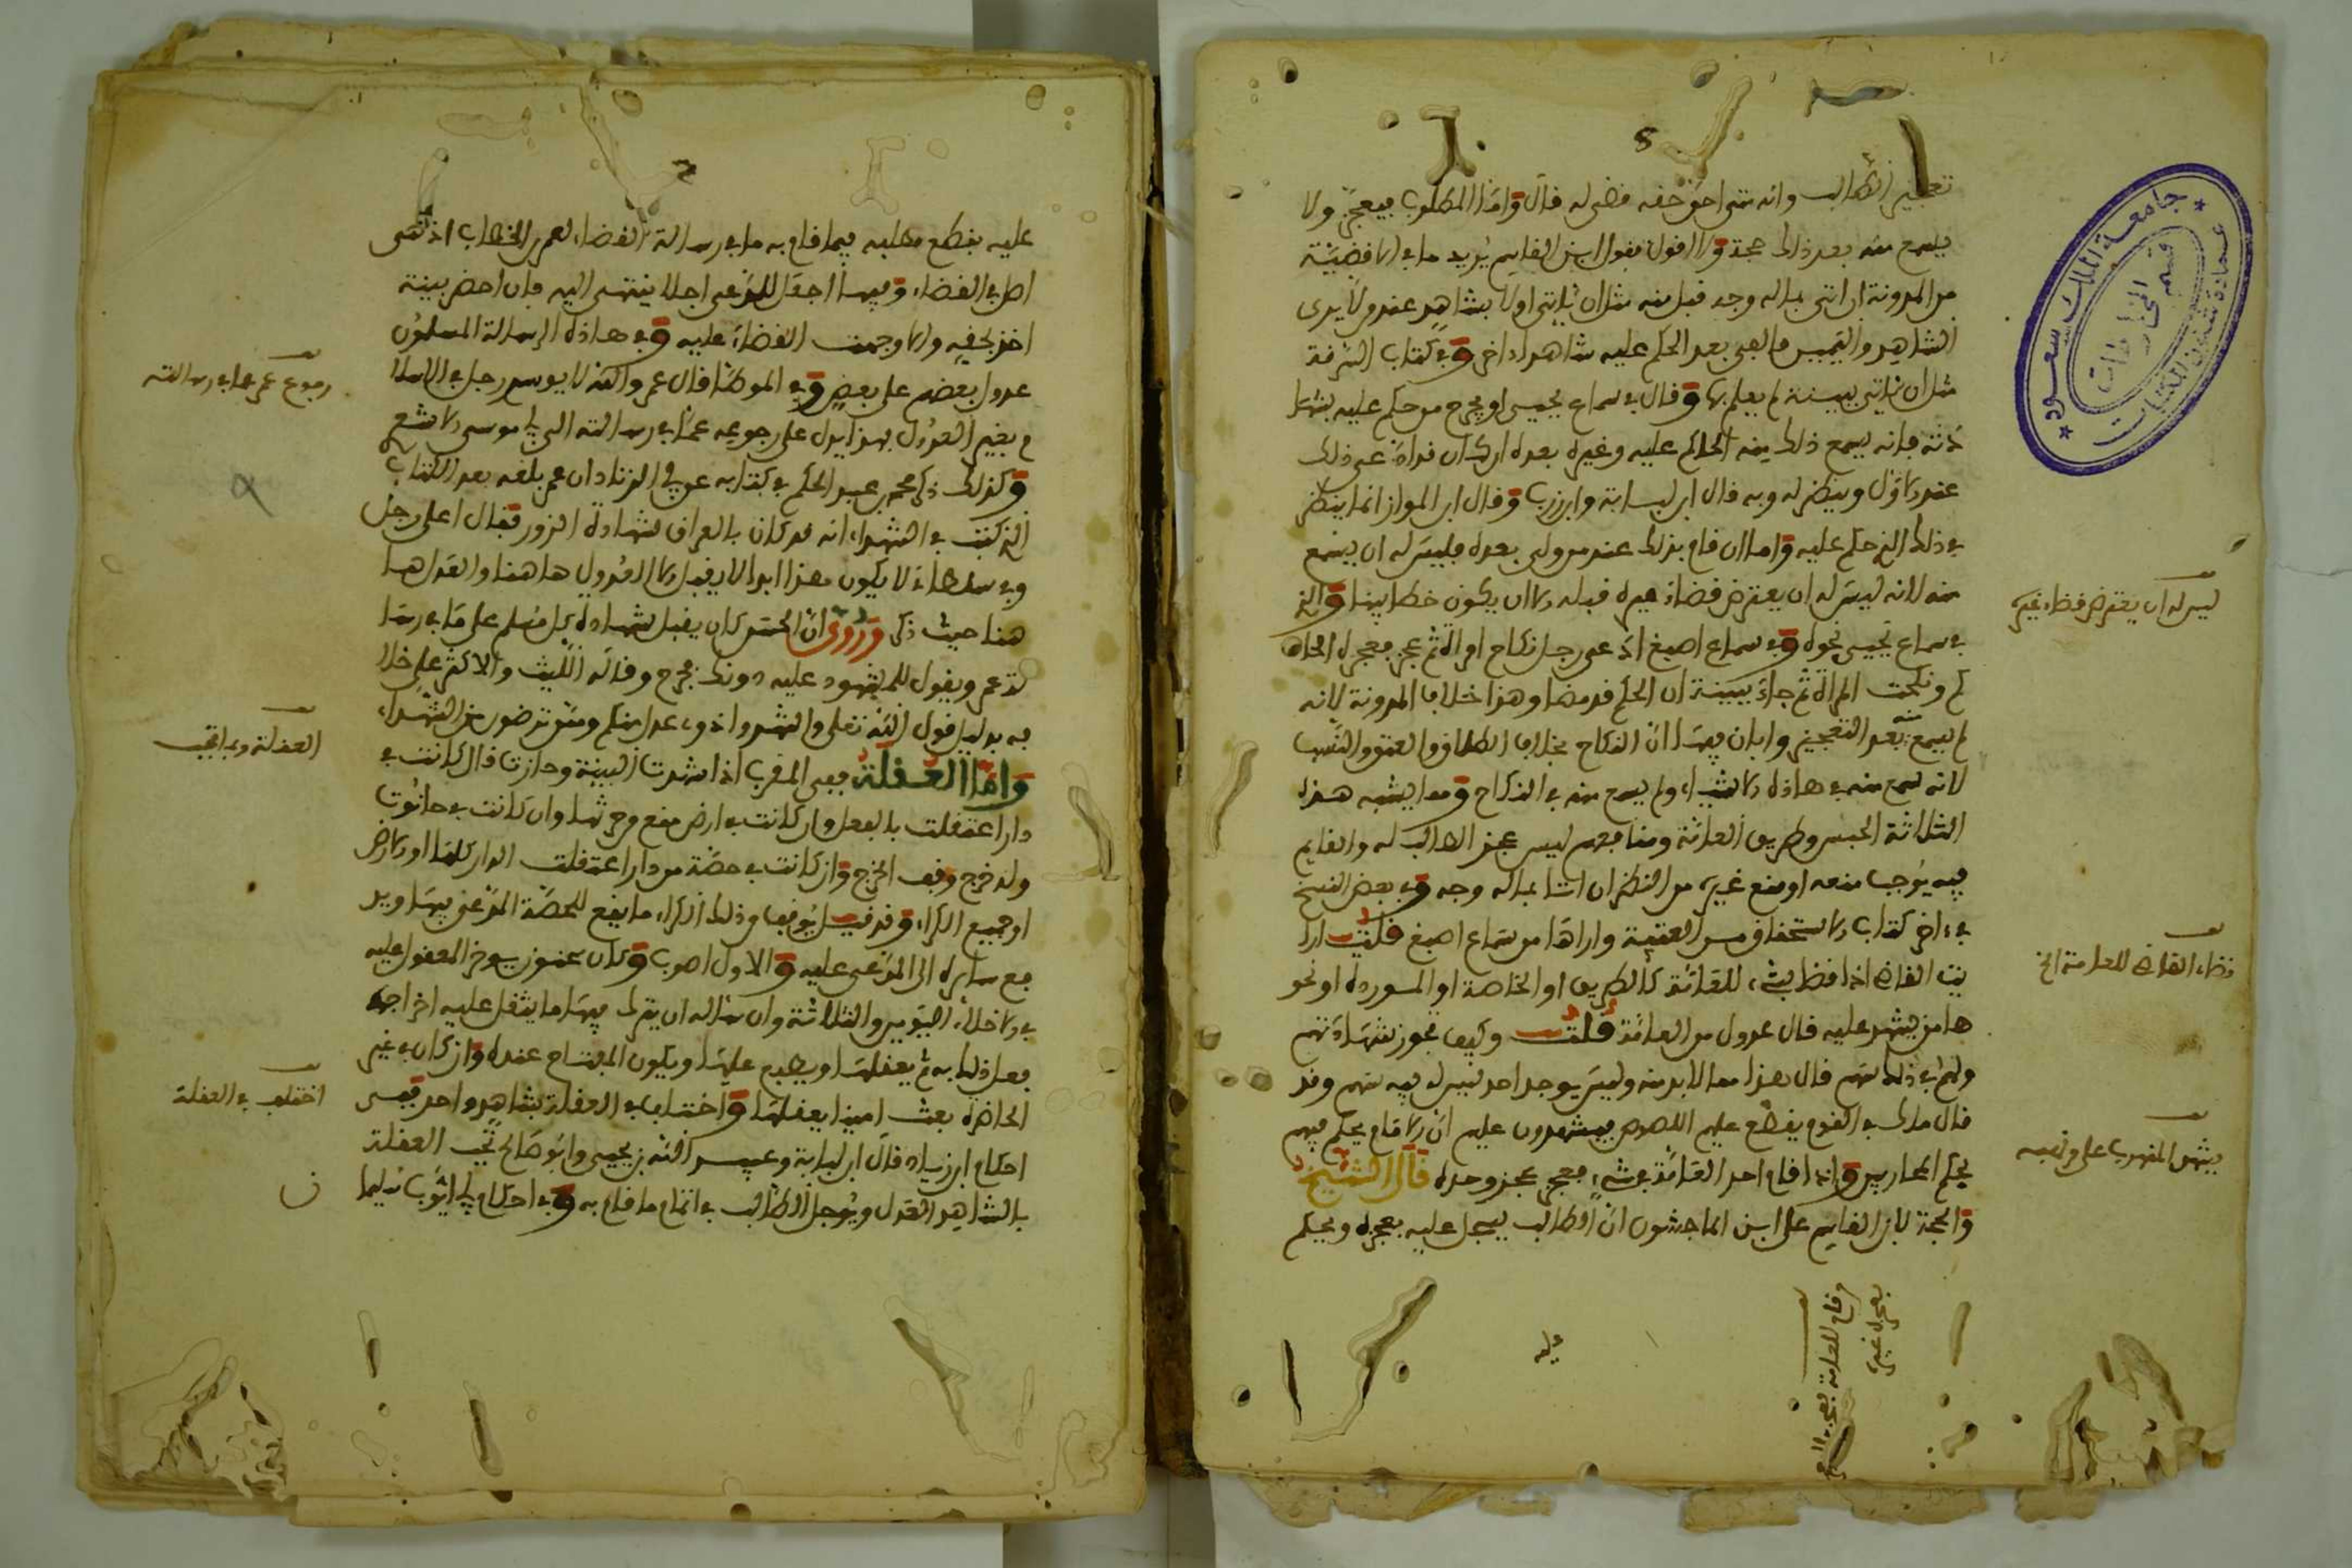 تعجيز الطالب وانه متى احق حقه قضى له قال وامّا المطلوب فيعجز ولا
يسمع منه بعد ذلك حجة ولا اقول بقول ابن القاسم يُريد ما في الاقضيَة
من المدونة ان اتى بما له وجه قبل منه مثل ان ياتي اولا بشاهِدٍ عند من لا يرى
الشاهِد واليَمين فالفى بعد الحكم عليه شاهدا اخر وفي كتاب السرقة
مثل ان ياتي ببينة لم يعلم بها وقال في سماع يحيى او يجرح من حكم عليه بشها
دته فانه يسمع ذلك منه الحاكم عليه وغيره بعده ان كان قد اتى عن ذلك
عند الاول وينظر له وبه قال ابن لبابة وابن زرب وقال ابن المواز انما ينظر
في ذلك الذي حكم عليه واما ان قام بذلك عند من ولي بعده فليس له ان يسمع
منه لانه ليس له ان يعترض قضاء غيره قبله الا ان يكون خطا بينا والذي
في سماع يحيى نحوه وفي سماع اصبغ ادعى رجل نكاح امراة ثم عجز فعجزه الحا
كم ونكحت المراة ثم جاء ببينة ان الحكم قد مضا وهذا خلاف المدونة لانه
لم يسمع منه بعد التعجيز وابان فيها ان النكاح بخلاف الطلاق والعتق والنسب
لانه سمع منه في هاذه الاشياء ولم يسمع منه في النكاح ومما يشبه هذه
الثلاثة الحبس وطريق العامّة ومنافعهم ليس عجز الطالب له والقايم
فيه يُوجب منعه او منع غيره من النظر ان اتى بما له وجه وفي بعض النسخ
في اخر كتاب الاستحقاق من العتبية واراها من سماع اصبغ قلت ارا
يت القاضي اذا قضا بشيء للعامّة كالطريق او الخاصة او المسورده او نحو
ها من يشهد عليه قال عدول من العامّة قلت وكيف تجوز شهادتهم
ولهم في ذلك سهم قال هذا مما لا بد منه وليس يوجد احد ليس له فيه سهم وقد
قال مالك في القوم يقطع عليهم اللصوص فيشهدون عليهم ان الامام يحكم فيهم
بحكم المحاربين واذا قام احد العامّة في شيءٍ فعجز عجز وحده قال الشيخ
والحجة لابن القاسم على ابن الماجشون ان الطالب يسجل عليه بعجزه ويحكم
ليس له ان يعترض قضاء غيره
قضاء القاضي للعامة الخ
يشهد المنهوب على ناهبه
قام للعامة فعجز لا
يعجز غيره
جامعة الملك سعود
عمادة شئون المكتبات
قسم المخطوطات
عليه بقطع مطلبه فيما قام به ما في رسالة القضاء لعمر بن الخطاب اذ هي
اصل في القضاء وفيها اجعل للمدعي اجلا ينتهى اليه فان احضر بينة
اخذ بحقه والا وجهت القضاء عليه وفي هاذه الرسالة المسلمون
عدول بعضهم على بعض وفي الموطا قال عمر والله لا يوسر رجل في الاسلا
م بغير العدُول فهذا يدل على رجوعه عمّا في رسالته الى ابي موسى الاشعري
وكذلك ذكر محمد بن عبد الحكم في كتابه عن ابي الزناد ان عمر بلغه بعد الكتاب
الذي كتب في الشهداء انه قد كان بالعراق شهادة الزور فقال اعلى رجل
وفي سلطاني لا يكون هذا ابدا لا يقبل الا العُدول هاهنا والعدل ها
هنا حيث ذكر ورُوي انّ الحسَن كان يقبل شهادة كل مُسلم على ما في رسا
لة عمر ويقول للمشهود عليه دونك فجرح وقاله الليث والاكثر على خلا
فه بدليل قول الله تعلى واشهدوا ذوي عدل منكم وممن ترضون من الشهداء
وامّا العُقلة ففي المغرب اذا شهدت البينة وحازت قال كانت في
دار اعتقلت بالقفل وان كانت في ارض منع من حرثها وان كانت في حانُوت
وله خرج وقف الخرج وان كانت في حصّة من دار اعتقلت الدار كلها او الارض
او جميع الكراء وقد قيل يُوقف من ذلك الكراء ما يقع للحصّة المدّعى فيها ويد
فع سايره الى المدعى عليه والاول اصوب وكان عندنا يوخر المعقول عليه
في الاخلاء اليَومين والثلاثة وان سال ان يترك فيها ما يثقل عليه اخراجه
فعل ذلك به ثم يعقلها ويطبع عليها ويكون المفتاح عنده وان كان في غير
الحاضرة بعث امينا يعقلها واختلف في العقلة بشاهد واحد ففي
احكام ابن زياد قال ابن لبابة وعبيد الله بن يحيى وابُو صَالح تجب العقلة
بالشاهد العدل ويُوجل الطالب في اتمام ما قام به وفي احكام ابي ايُوب سليما
ن
رجوع عمر عما في رسالته
العقلة وبما تجب
اختلف في العقلة